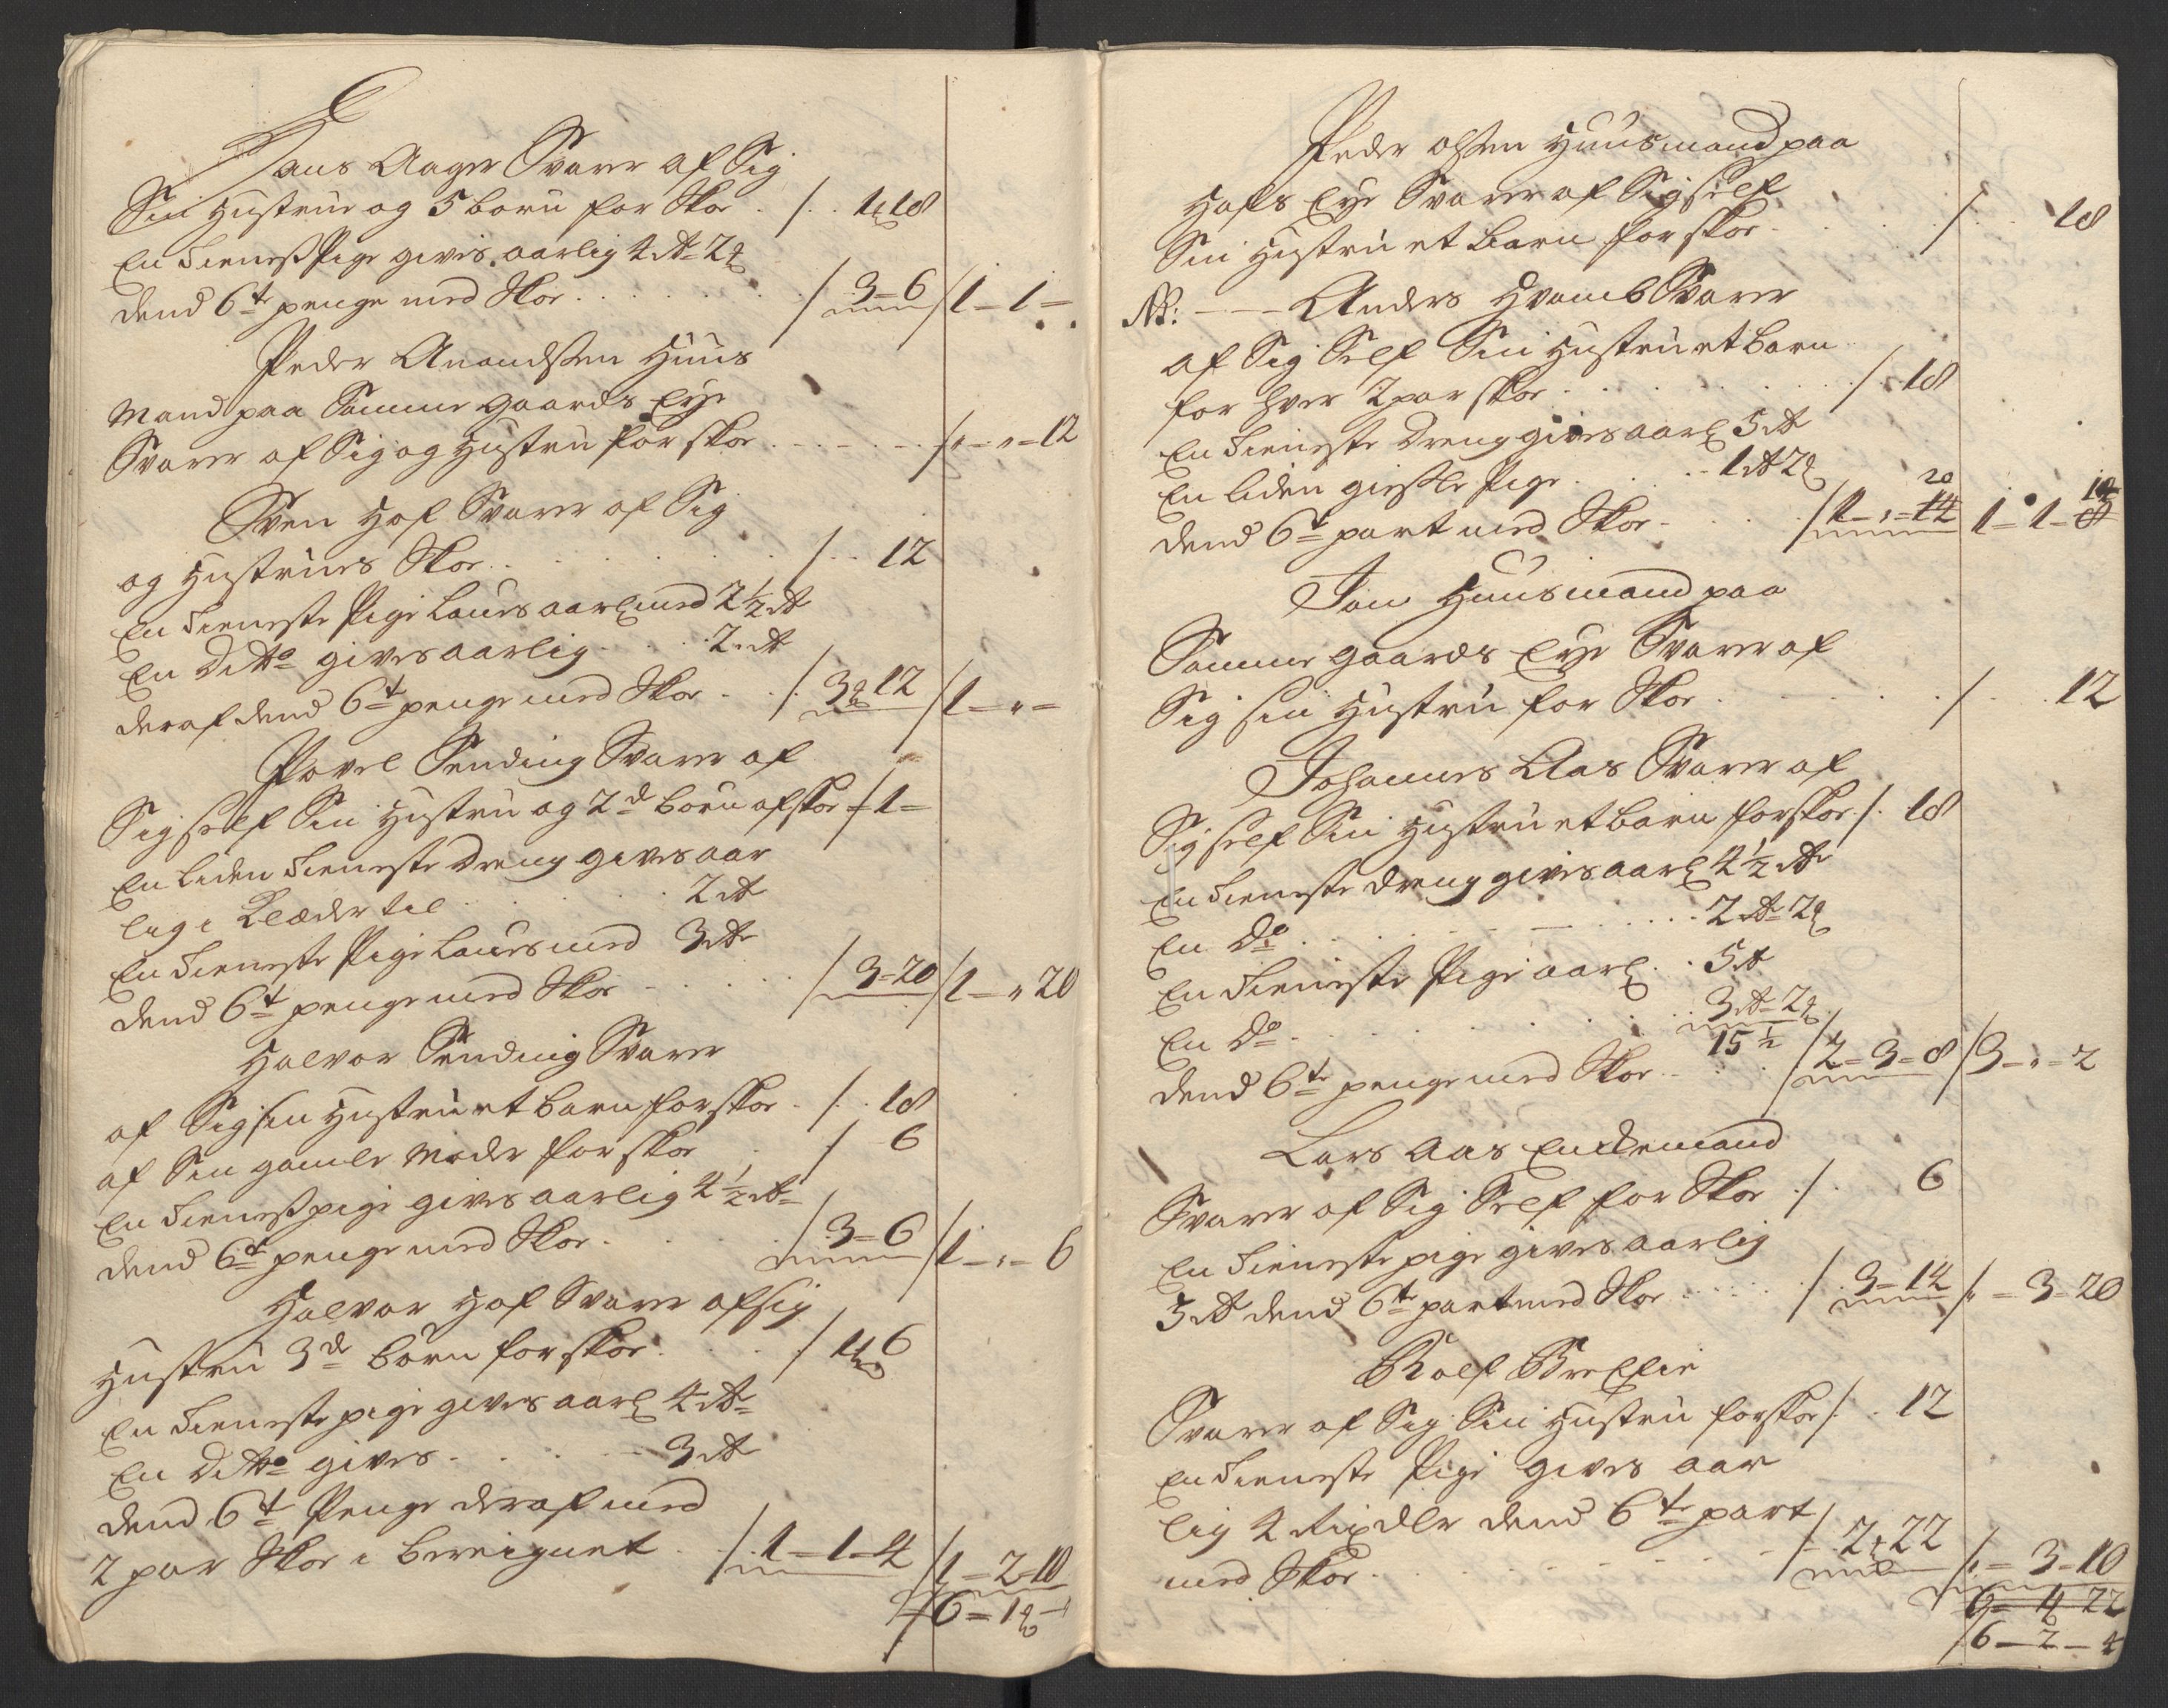 Hans Aager Svarer af Sig
Sin Hustrue og 5 börn for Skoe . /. . 1 18
En Tieneste Pige givis aarlig 4 rd 2
dend 6te penge med Skoe . . . . . / 3=6 / 1 – 1 –
Peder Anondssen Huus
Mand paa Samme Gaards Eye
Svarer af Sig og Hustru for skoe . . . . /" – " = 12
Sven Hof Svarer af Sig
og Hustrues Skoe . . . . . /. . . 12
En Tieneste Pige Laures aarl med 2½ rd
En Ditto givis aarlig . . . 2 rd
deraf dend 6te penge med Skoe . . /. 3 12 / 1 – " –
Povel Sending Svarer af
Sig self Sin Hustru og 2de börn af skoe / 1 –
En liden Tieneste Dreng gives aar
lig i Klæder til . . . . 2 rd
En Tieneste Pige Laures med 3 rd
dend 6te penge med Skoe . . . . / 3=20 / 1 – " 20
Halvor Sending Svarer
af Sig sin Hustru et barn for skoe . /. . 18
af Sin gamle Moder for skoe . / 6
En Tieneste pige gives aarlig 4½ rd
dend 6te penge med Skoe . . . / 3=6 / 1 – " – 6
Halvor Hof Svarer af sig
Hustru 3de börn for skoe . . . . / 1 6
En Tieneste pige gives aarl 4 rd
En Ditto gives . . . . . 3 rd
dend 6te Penge deraf med
2 par Skoe i bereignet . . /. 1 – 1 – 4 / 1 = 2 = 10
/ 6 = 1 –
Peder olssen Huusmand paa
Hofs Eye Svarer af Sig self
Sin Hustru et barn for skoe . . . . / . . 18
NB: – – – Anders Hvamb Svarer
af Sig Self Sin Hustru et barn
for hver 2 par skoe . . . . . /. 18
En Tieneste Dreng gives aarl 5 rd
En liden giestle Pige . . . . 1 rd 2
20
dend 6te part med Skoe . . . . / 1 – " = 14 1 = 1 – 8
Jon Huusmand paa
Samme gaards Eye Svarer af
Sig sin Hustru for Skoe . . . . . / . . . 12
Johannes Aas Svarer af
Sig self Sin Hustru et barn for skoe . /. 18
En Tieneste dreng givis aarl 4½ rd
En Do . . . . – . . . 2 rd 2
En Tieneste Pige aarl . . 5 rd
En Do . . . . . . 3 rd 2
15½
dend 6te penge med Skoe . . . / 2 = 3 = 8 / 3 – " = 2
Lars Aas Enckemand
Svarer af Sig Self for Skoe . /. . 6
En Tieneste pige gives aarlig
3 rd dend 6te part med Skoe . . . . . / 3=14 /" = 3=20
Rolf
Svarer af Sig Sin Hustru for skoe /. . 12
En Tieneste Pige gives aar
lig 4 Rixdlr dend 6te part
med Skoe . . . . . . . / 2 22 /" = 3 – 10
6 = 4 22
/ 6 – 2 – 4